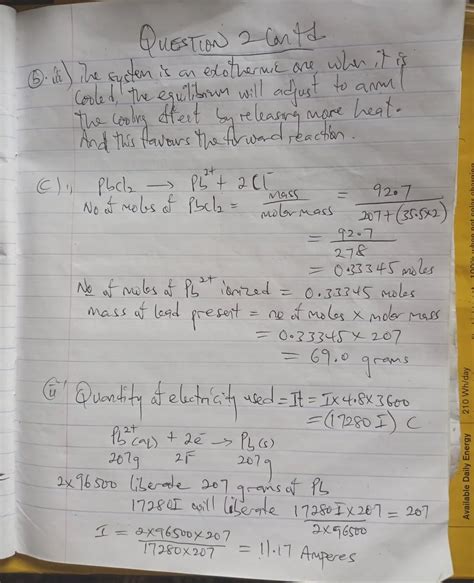 QUESTION 2 Contd
(b). iii) The system is an exothermic one when it is
cooled, the equilibrium will adjust to annul
the cooling effect by releasing more heat.
And this favours the forward reaction.
(c) i) PbCl2 → Pb2+ + 2Cl-
No of moles of PbCl2 = mass / molar mass = 92.7 / 207+(35.5x2)
= 92.7 / 278
= 0.33345 moles
No of moles of Pb2+ ionized = 0.33345 moles
mass of lead present = no of moles x molar mass
= 0.33345 x 207
= 69.0 grams
(ii) Quantity of electricity used = It = I x 4.8 x 3600
= (17280 I) C
Pb2+(aq) + 2e- → Pb(s)
207g 2F 207g
2x96500 liberate 207 grams of Pb
17280I will liberate 17280I x 207 / 2x96500 = 207
I = 2x96500x207 / 17280x207 = 11.17 Amperes
Available Daily Energy 210 Wh/day